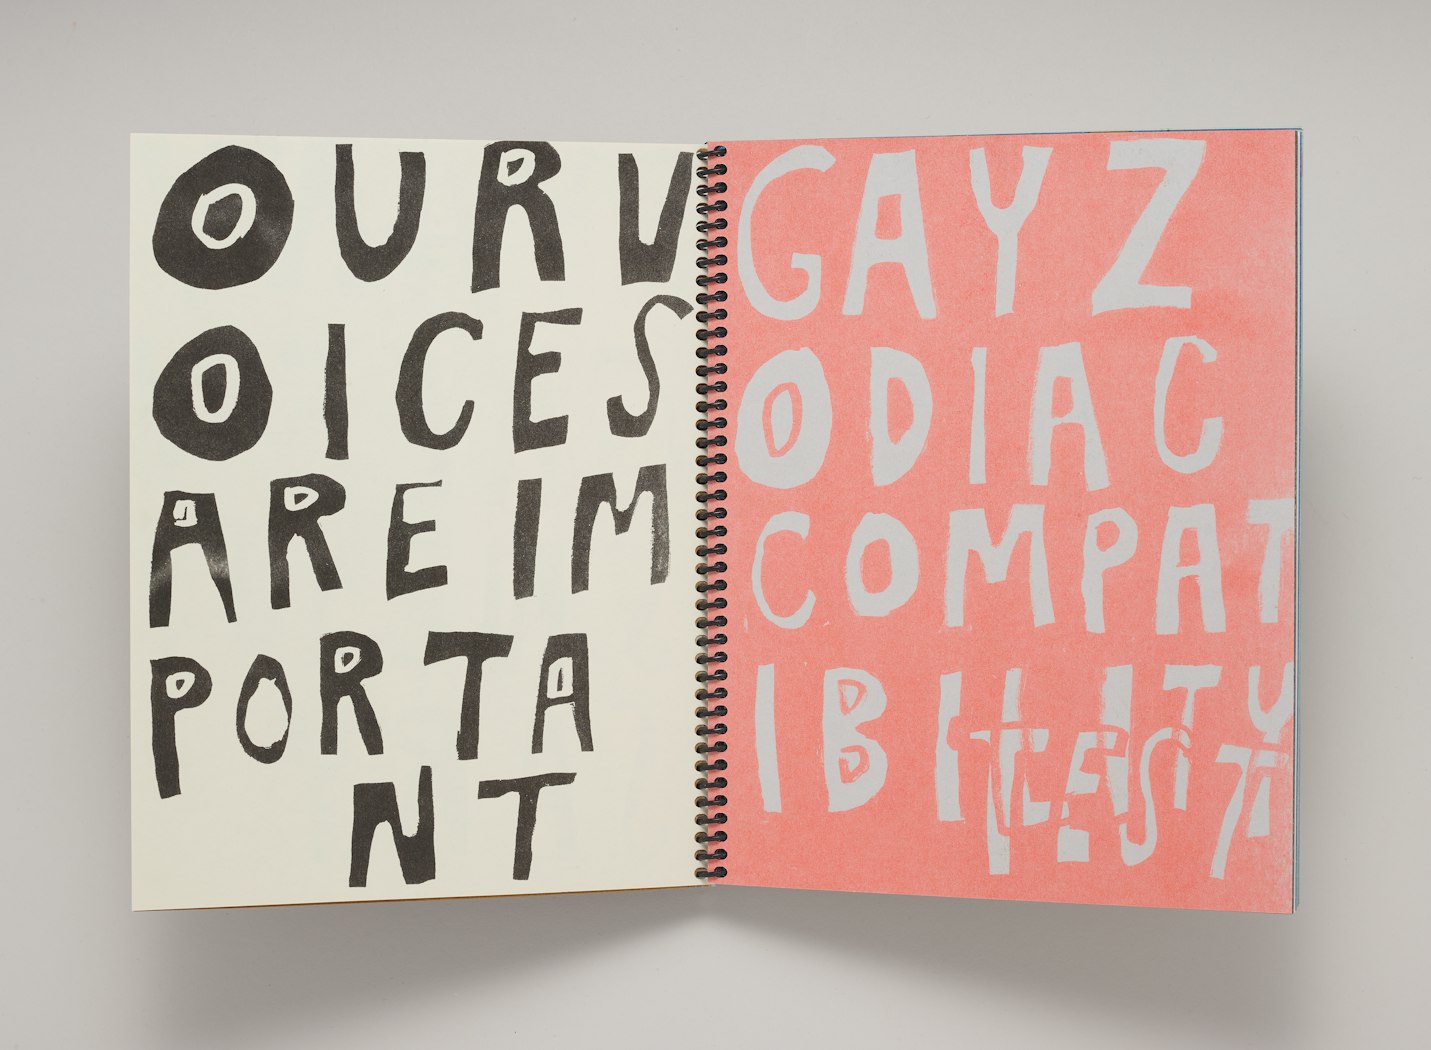 OUR V
OICES
ARE IM
PORTA
NT
GAY Z
ODIAC
COMPAT
IBILITY
TEST